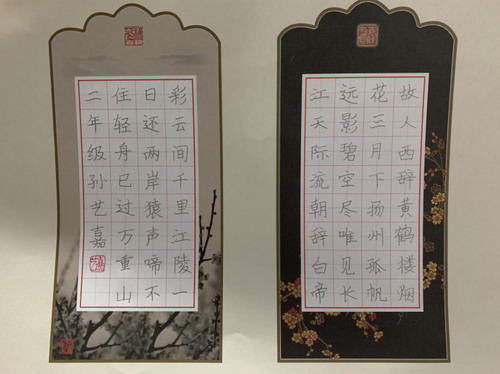 故人西辞黄鹤楼烟
花三月下扬州孤帆
远影碧空尽唯见长
江天际流朝辞白帝
彩云间千里江陵一
日还两岸猿声啼不
住轻舟已过万重山
二年级孙艺嘉